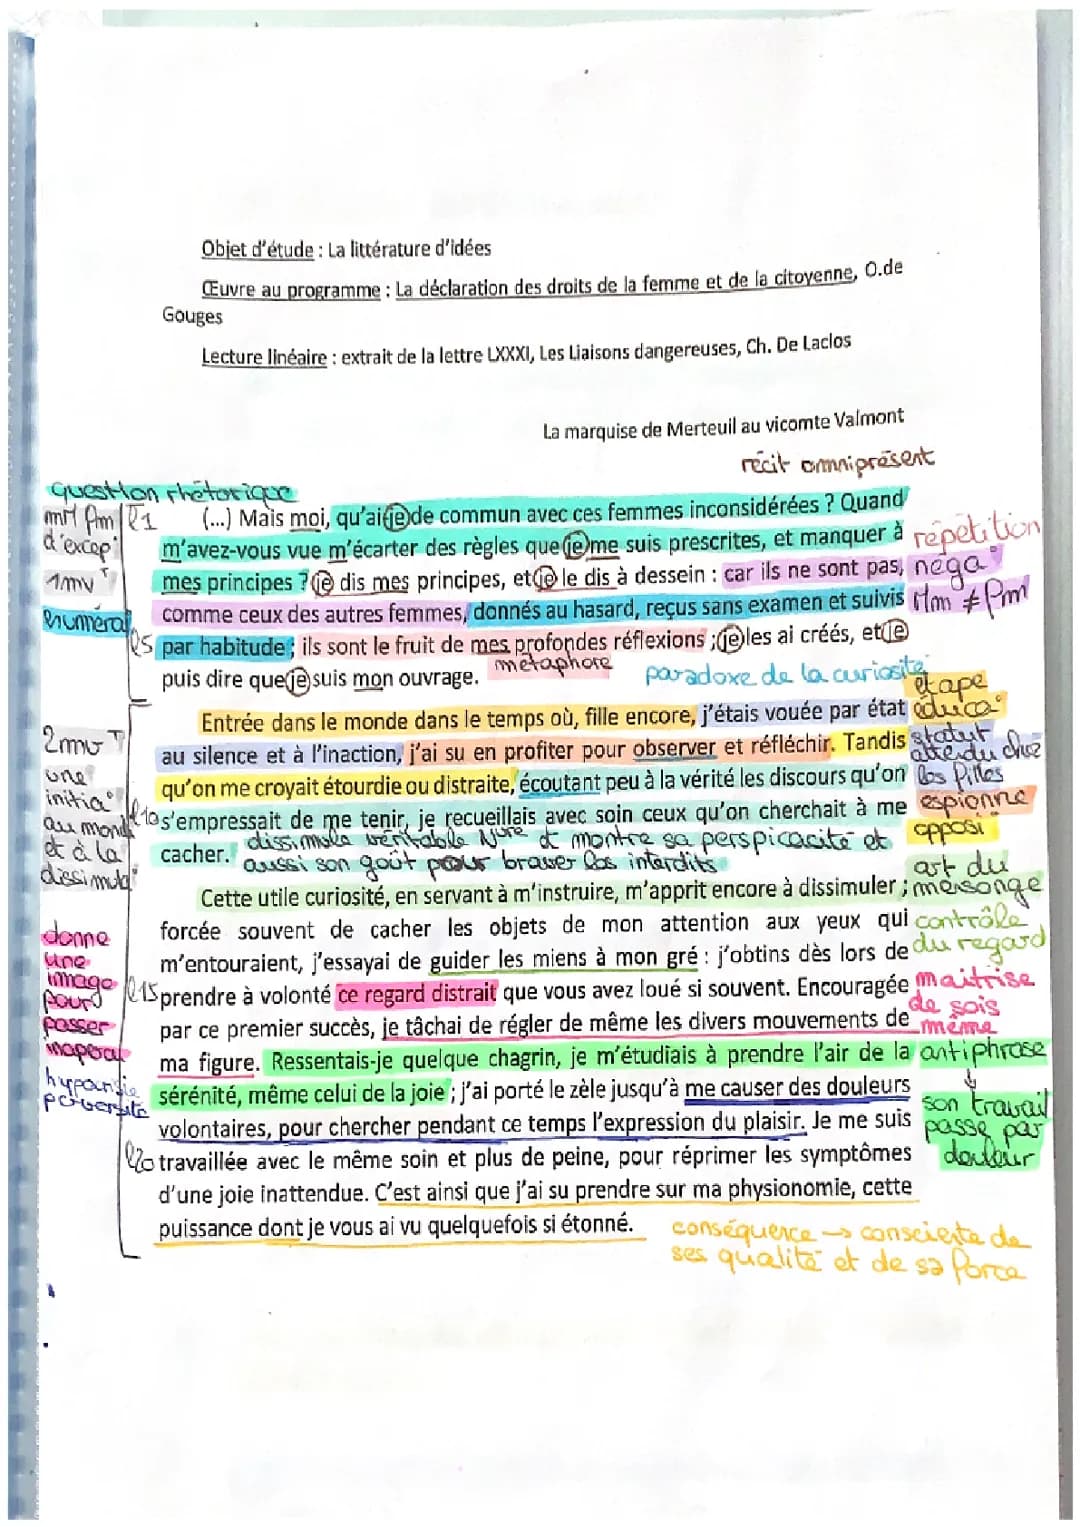 Objet d'étude : La littérature d'idées
Œuvre au programme : La déclaration des droits de la femme et de la citoyenne, O.de
Gouges
Lecture linéaire : extrait de la lettre LXXXI, Les Liaisons dangereuses, Ch. De Laclos
La marquise de Merteuil au vicomte Valmont
récit omniprésent
question rhétorique
l1 (...) Mais moi, qu'ai-je de commun avec ces femmes inconsidérées ? Quand
d'excep°
m'avez-vous vue m'écarter des règles que je me suis prescrites, et manquer à
répétition
1mvT
mes principes ? je dis mes principes, et je le dis à dessein : car ils ne sont pas,
néga°
énuméra°
comme ceux des autres femmes, donnés au hasard, reçus sans examen et suivis
Mm ≠ Pm
l5 par habitude ; ils sont le fruit de mes profondes réflexions ; je les ai créés, et je
métaphore
puis dire que je suis mon ouvrage.
paradoxe de la curiosité
étape
Entrée dans le monde dans le temps où, fille encore, j'étais vouée par état
éduca°
2mvT
au silence et à l'inaction, j'ai su en profiter pour observer et réfléchir. Tandis
statut
attendu chez
une
qu'on me croyait étourdie ou distraite, écoutant peu à la vérité les discours qu'on
les filles
initia°
l10 s'empressait de me tenir, je recueillais avec soin ceux qu'on cherchait à me
espionne
au monde
et à la
dissimula°
cacher.
dissimule véritable Nure et montre sa perspicacité et
aussi son goût pour braver les interdits
opposi°
art du
Cette utile curiosité, en servant à m'instruire, m'apprit encore à dissimuler ;
mensonge
forcée souvent de cacher les objets de mon attention aux yeux qui
contrôle
donne
m'entouraient, j'essayai de guider les miens à mon gré : j'obtins dès lors de
du regard
une
image
l15 prendre à volonté ce regard distrait que vous avez loué si souvent. Encouragée
maitrise
pour
passer
par ce premier succès, je tâchai de régler de même les divers mouvements de
de sois
même
ma figure. Ressentais-je quelque chagrin, je m'étudiais à prendre l'air de la
antiphrase
sérénité, même celui de la joie ; j'ai porté le zèle jusqu'à me causer des douleurs
perversité
son travail
volontaires, pour chercher pendant ce temps l'expression du plaisir. Je me suis
passe par
l20 travaillée avec le même soin et plus de peine, pour réprimer les symptômes
douleur
d'une joie inattendue. C'est ainsi que j'ai su prendre sur ma physionomie, cette
puissance dont je vous ai vu quelquefois si étonné.
conséquence → consciente de
ses qualité et de sa force